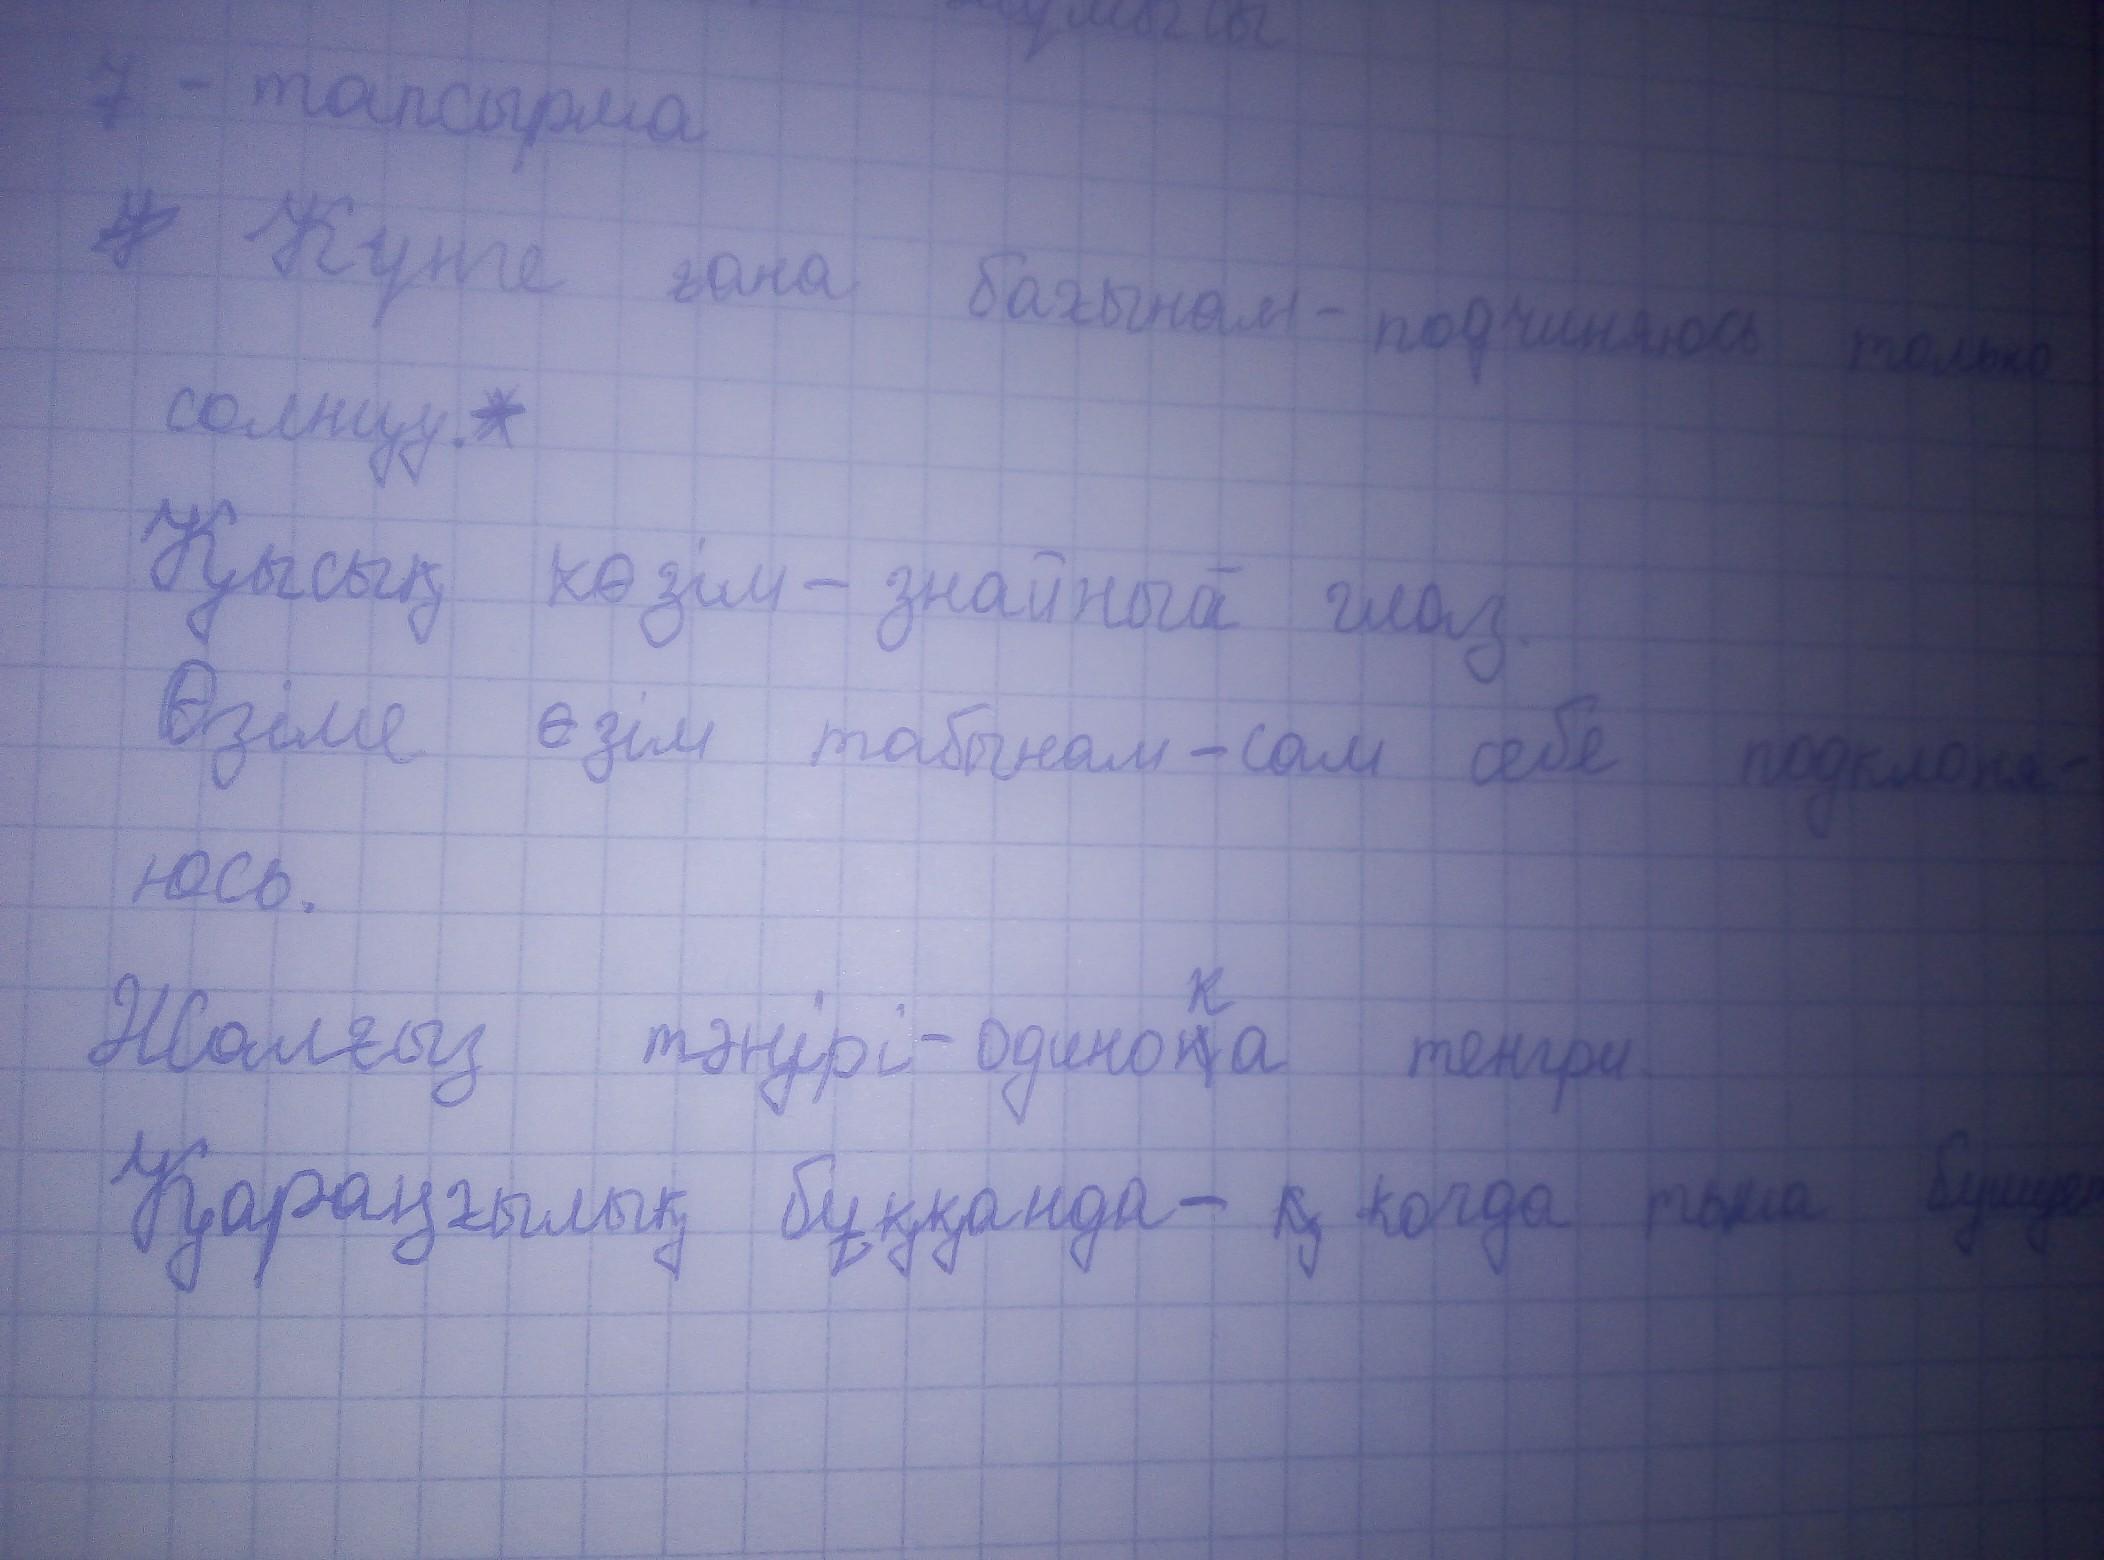 жұмысы
7 - тапсырма
Күнге ғана бағынам - подчиняюсь только
солнцу.*
Қысық көзім - знайный глаз.
Өзіме өзім табынам - сам себе подклоня-
юсь.
Жалғыз тәңірі - одинока тенгри
Қараңғылық бұққанда - когда тьма бушует